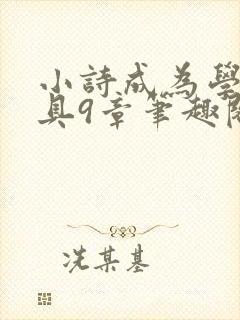 小詩成為學
具9章筆趣閣
冼某基